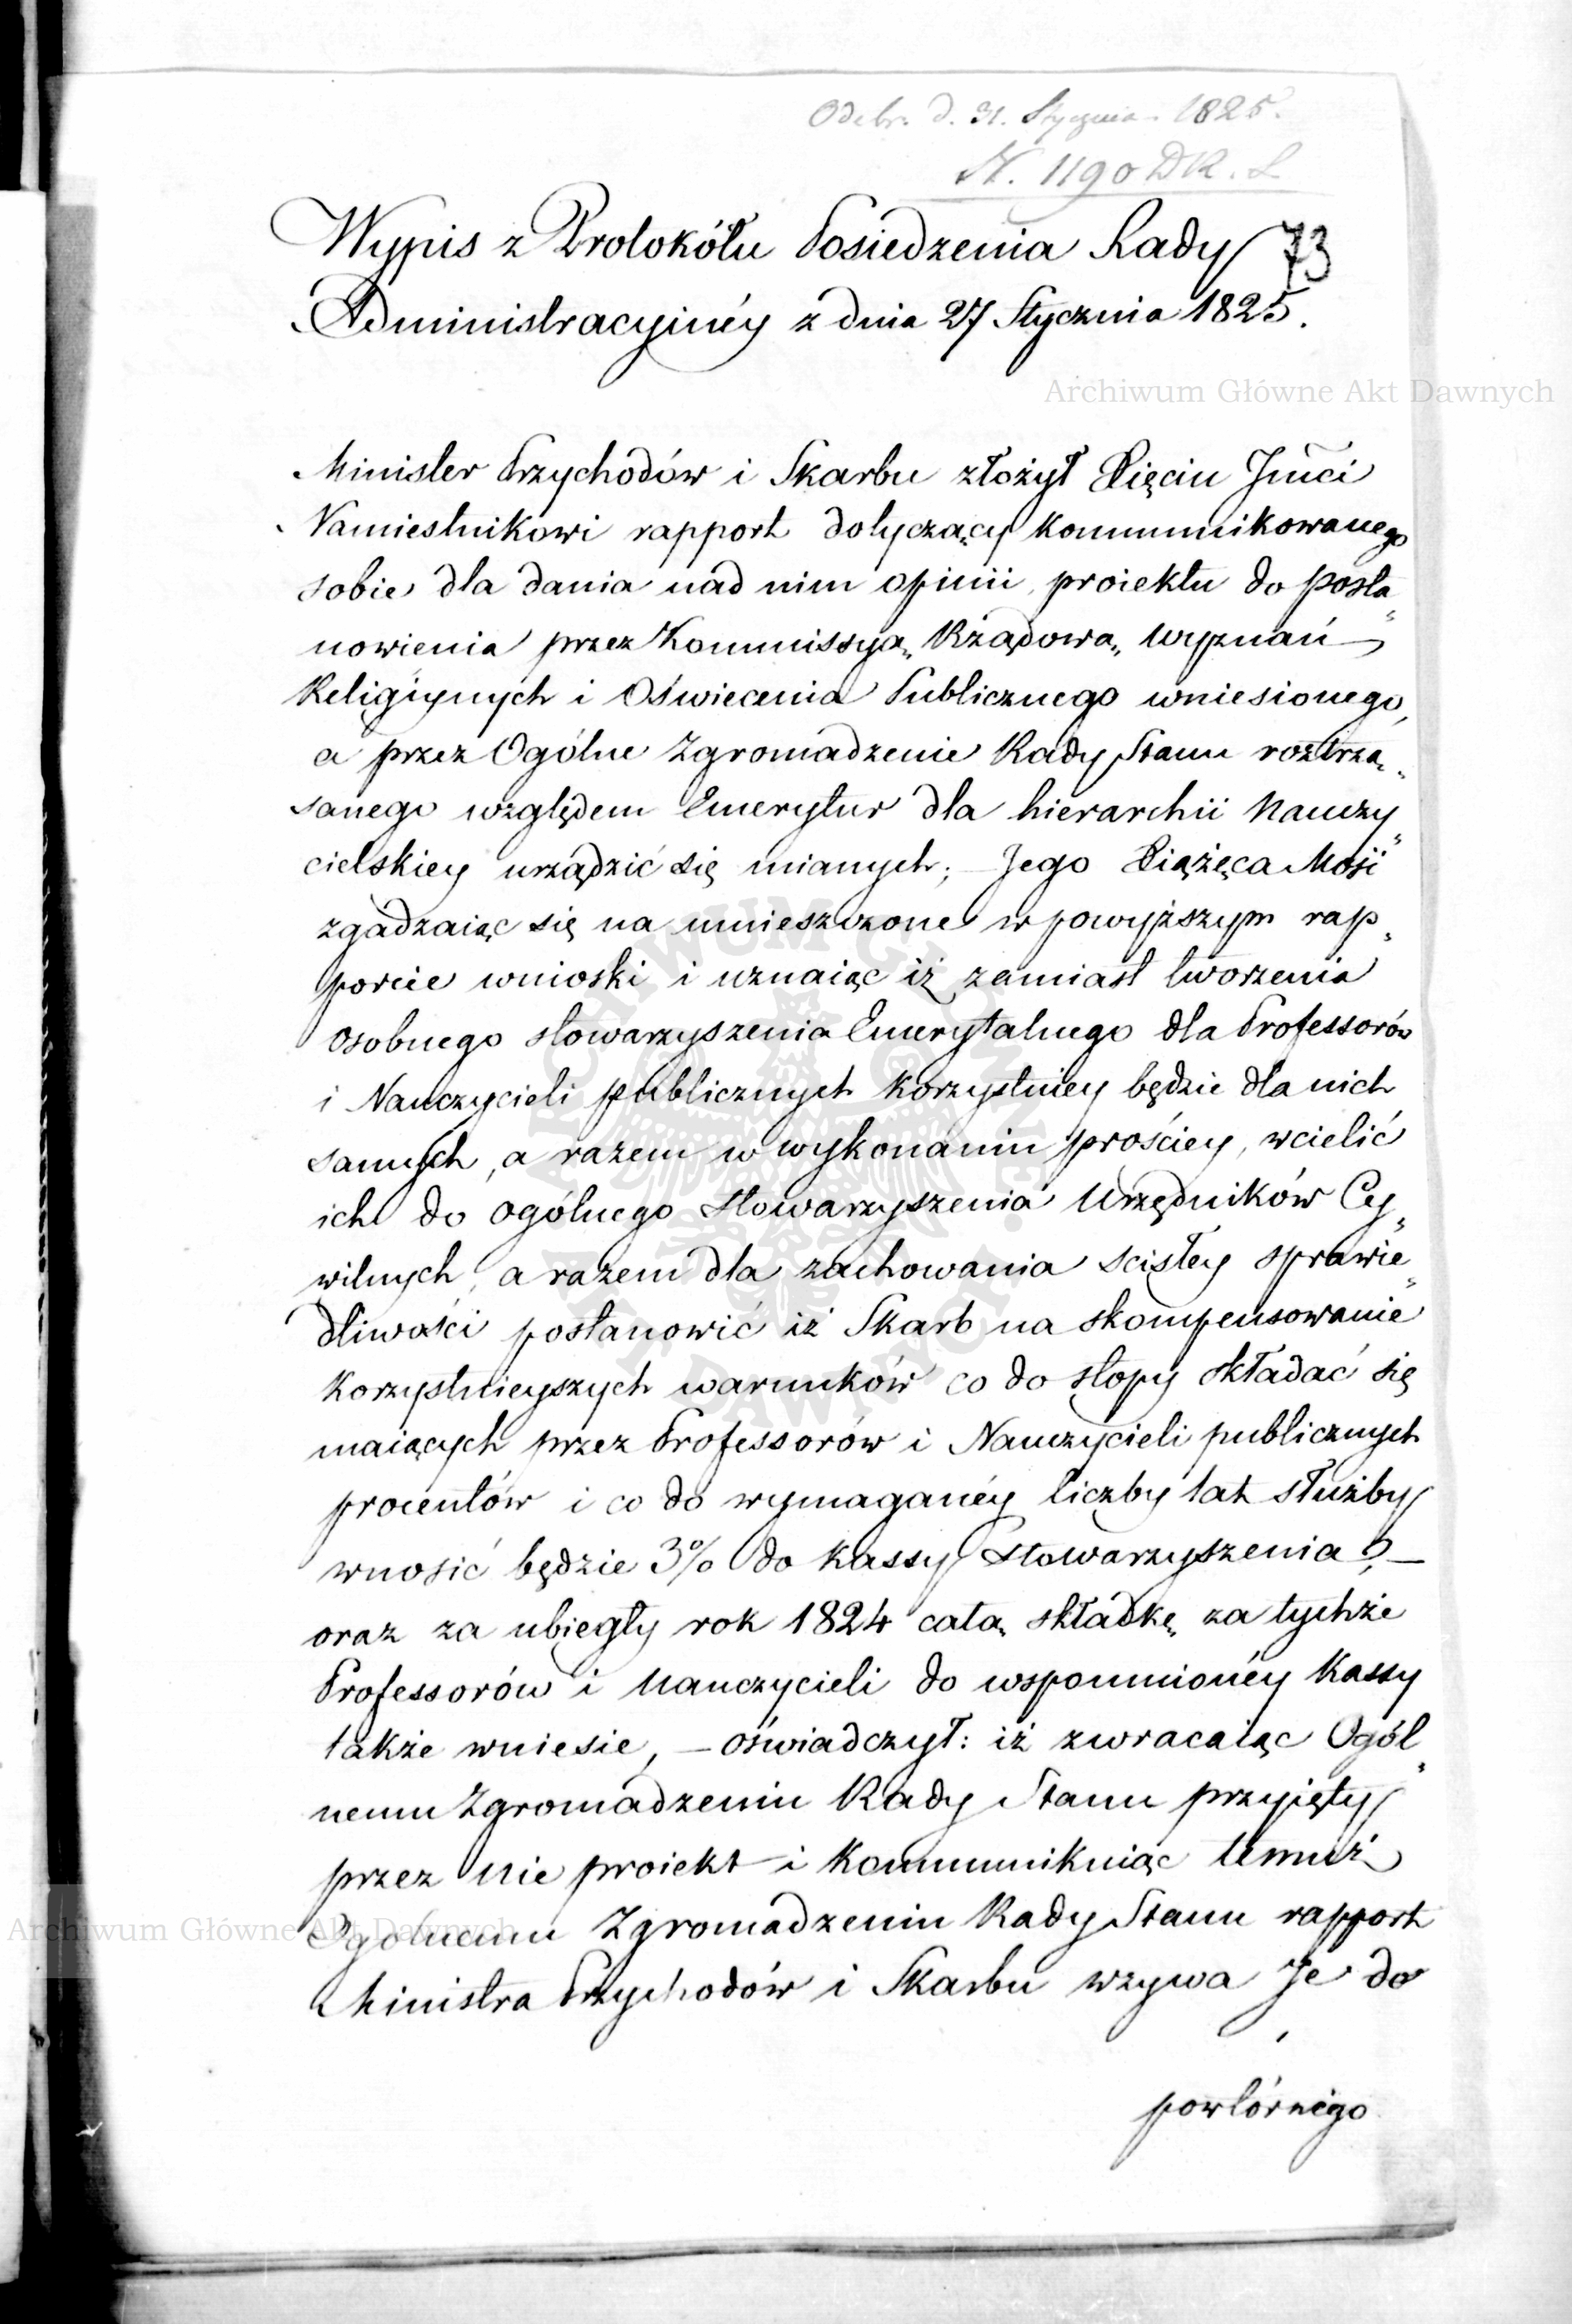 Odebr. d. 31. Stycznia 1825.
N. 1190 DR. S
73
Wypis z Protokółu Posiedzenia Rady
Administracyinéy z dnia 27 Stycznia 1825.
Archiwum Główne Akt Dawnych
Minister Przychodów i Skarbu złożył Xięciu Jmci
Namiestnikowi rapport dotyczący kommunikowanego
sobie dla dania nad nim opinii, proiektu do posta„
nowienia przez Kommissyą Rządową Wyznań
Religiynych i Oświecenia Publicznego wniesionego,
a przez Ogólne Zgromadzenie Rady Stanu roztrzą„
sanego względem Emerytur dla hierarchii Nauczy„
cielskiey urządzić się mianych; – Jego Xiążęca Mość
zgadzaiąc się na umieszczone w powyższym rap„
porcie wnioski i uznaiąc iż zamiast tworzenia
osobnego stowarzyszenia Emerytalnego dla Professorów
i Nauczycieli publicznych korzystniey będzie dla nich
samych, a razem w wykonaniu prościey, wcielić
ich do ogólnego Stowarzyszenia Urzędników Cy„
wilnych, a razem dla zachowania scisłey sprawie„
dliwości postanowić iż Skarb na skompensowanie
korzystnieyszych warunków co do stopy składać się
maiących przez Professorów i Nauczycieli publicznych
procentów i co do wymaganéy liczby lat służby
wnosić będzie 3% do Kassy Stowarzyszenia, –
oraz za ubiegły rok 1824 całą składkę za tychże
Professorów i Nauczycieli do wspomnionéy Kassy
także wniesie, – oświadczył: iż zwracaiąc Ogól„
nemu Zgromadzeniu Rady Stanu przyięty
przez nie proiekt i kommunikuiąc temuż
Ogólnemu Zgromadzeniu Rady Stanu rapport
Archiwum Główne Akt Dawnych
Ministra Przychodów i Skarbu wzywa Je do
powtórnégo
ARCHIWUM GŁÓWNE
AKT DAWNYCH